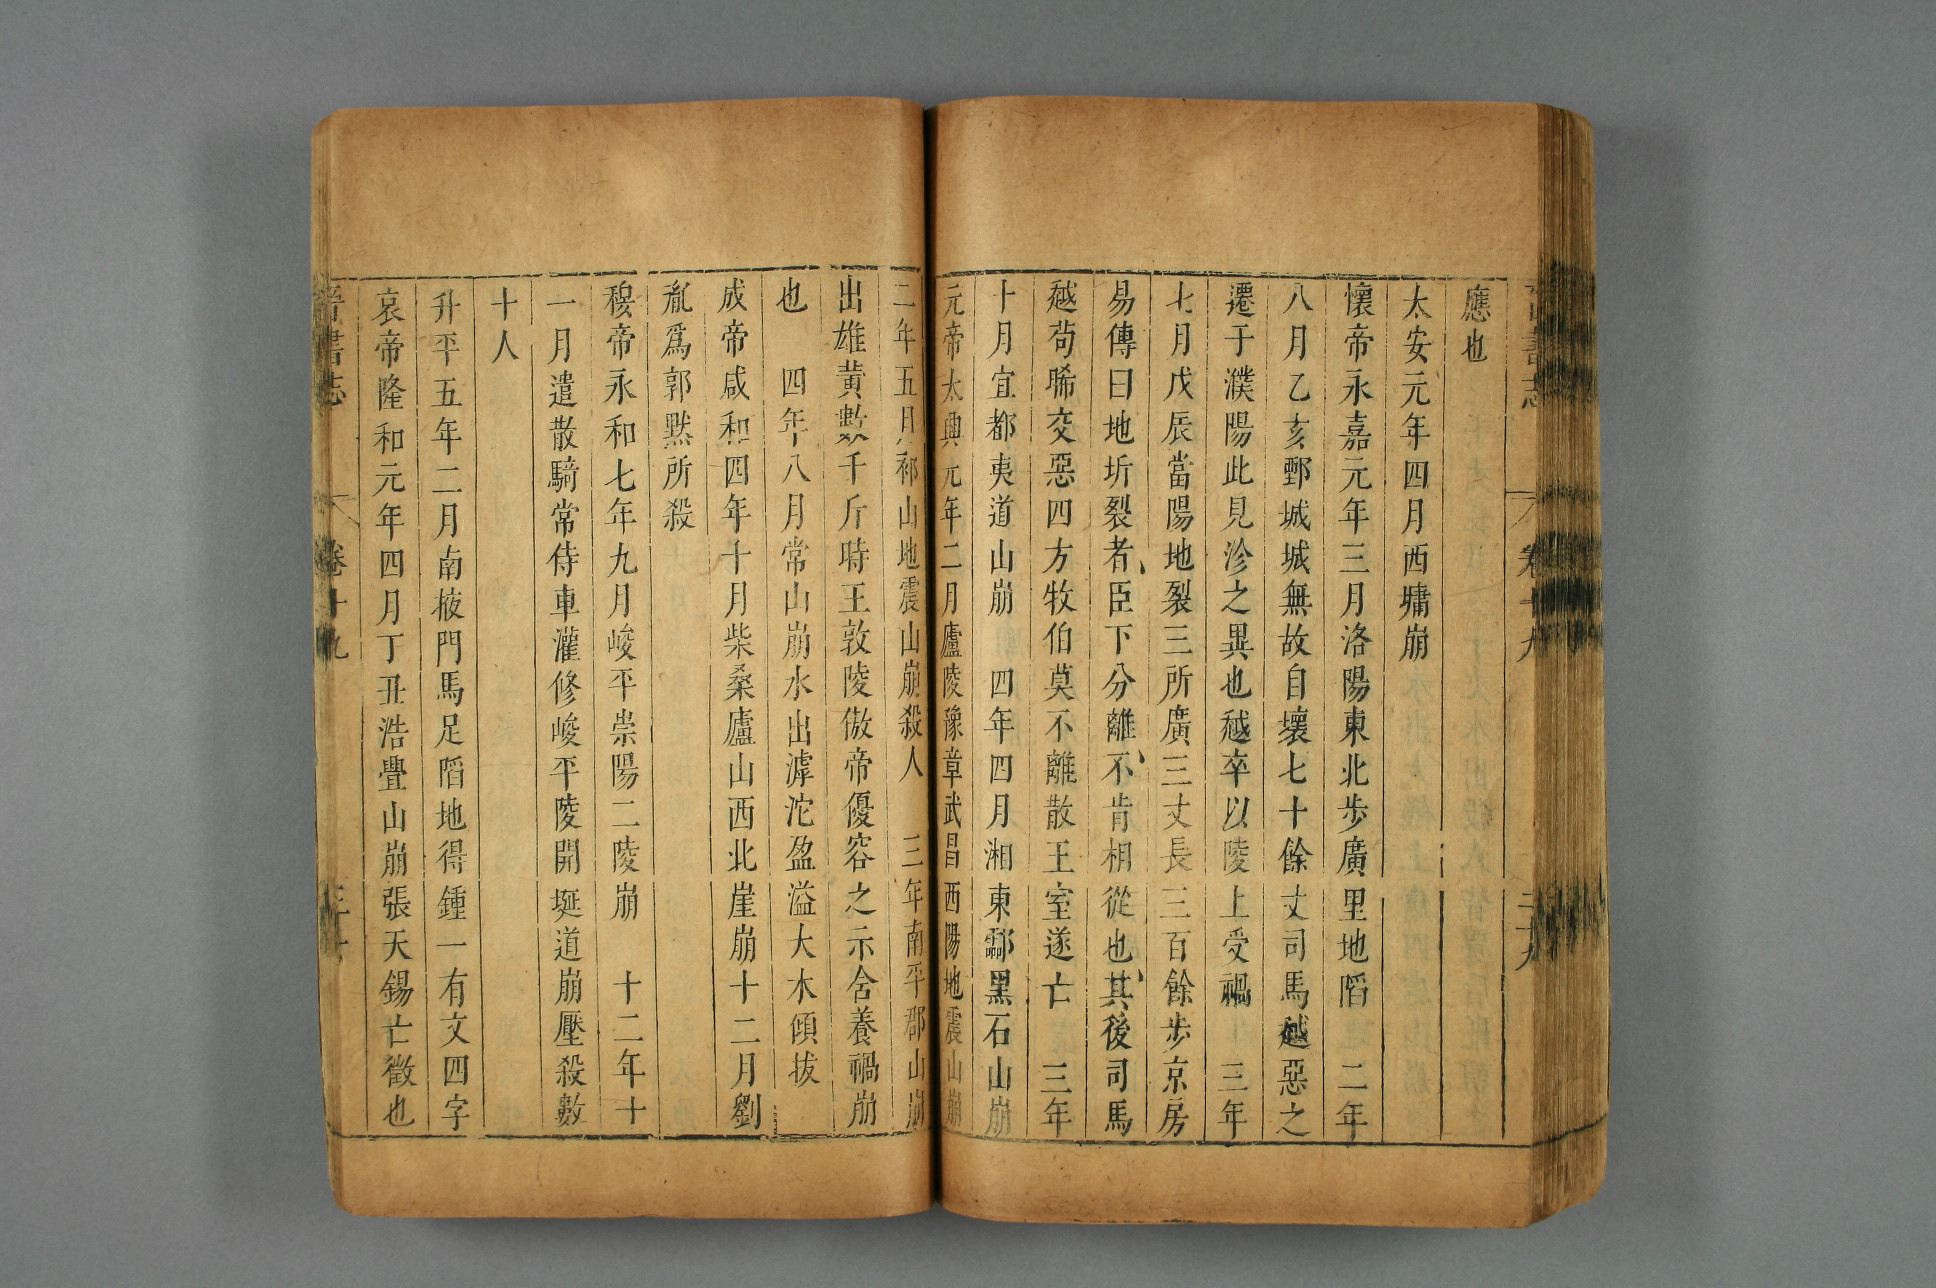 應也
太安元年四月西墉崩
懷帝永嘉元年三月洛陽東北步廣里地陷 二年
八月乙亥鄄城城無故自壞七十餘丈司馬越惡之
遷于濮陽此見沴之異也越卒以陵上受禍 三年
七月戊辰當陽地裂三所廣三丈長三百餘步京房
易傳曰地坼裂者臣下分離不肯相從也其後司馬
越苟晞交惡四方牧伯莫不離散王室遂亡 三年
十月宜都夷道山崩 四年四月湘東酃黑石山崩
元帝太興元年二月廬陵豫章武昌西陽地震山崩
二年五月祁山地震山崩殺人 三年南平郡山崩
出雄黃數千斤時王敦陵傲帝優容之示含養禍崩
也 四年八月常山崩水出滹沱盈溢大木傾拔
成帝咸和四年十月柴桑廬山西北崖崩十二月劉
胤爲郭默所殺
穆帝永和七年九月峻平崇陽二陵崩 十二年十
一月遣散騎常侍車灌修峻平陵開埏道崩壓殺數
十人
升平五年二月南掖門馬足陷地得鍾一有文四字
哀帝隆和元年四月丁丑浩亹山崩張天錫亡徵也
晉書志 卷十九